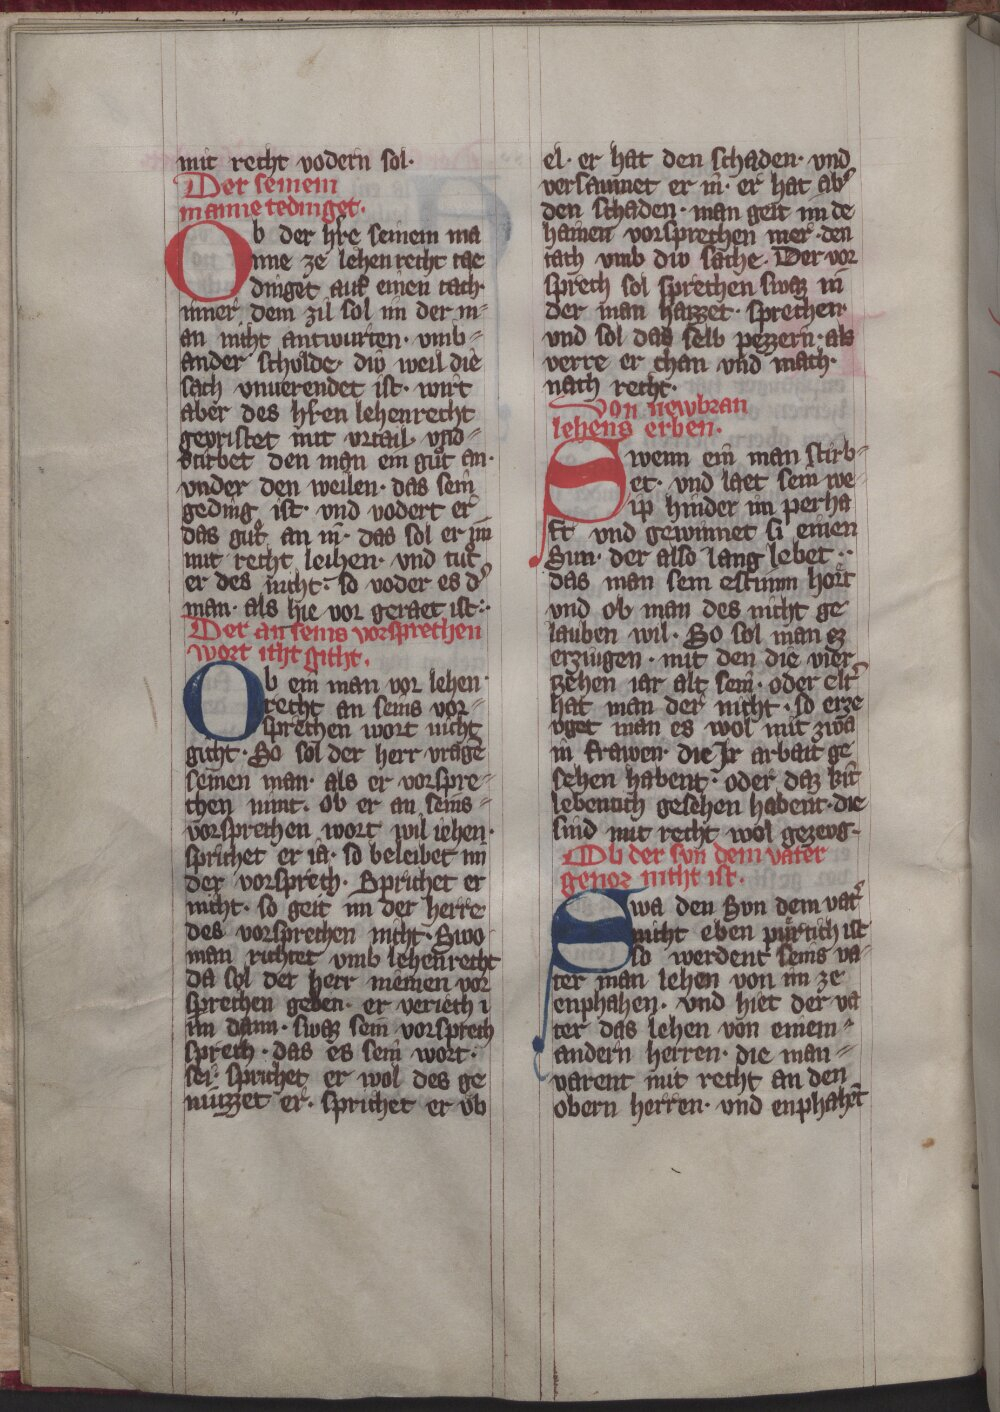 mit recht vodern sol·
Der seinem
manne tedinget·
Ob der hr̄e seinem ma
nne ze lehenrecht tae
dinget auf einen tach·
inner dem zil sol im der m-
an nicht antwurten· vmb-
ander schulde· diͦ weil die
sach vnuerendet ist· wirt
aber des hr̄en lehenrecht
gevristet mit vrtail· vnd-
stirbet den man ein guͦt an·
vnder den weilen· das sein
geding ist· vnd vodert er
das guͦt an in· das sol er im
mit recht leihen· vnd tuͦt
er des nicht· so voder es d᾽
man· als hie vor geraet ist:·
Der an seins vorsprechen
wort icht gicht·
Ob ein man vor lehen·
recht an seins vor-
sprechen wort nicht
gicht· So sol der herr vrage
seinen man· als er vorspre-
chen nimt· ob er an seins-
vorsprechen wort wil iehen·
sprichet er ia· so beleibet im
der vorsprech· Sprichet er
nicht· so geit im der herre
des vorsprechen nicht· Swo
man richtet vmb lehenrecht
da sol der herr niemen vor
sprechen geben· er veriech i
im dann· swaz sein vorsprech
sprech· das es sein wort·
sei· sprichet er wol des ge
nuzzet er· sprichet er vb
el· er hat den schaden· vnd
versaumet er in· er hat ab᾽
den schaden· man geit im de
hainen vorsprechen mer· den
tach vmb div sache· Der vor
sprech sol sprechen swaz in
der man haizzet· sprechen
vnd sol das selb pezzern· als
verre er chan vnd mach·
nach recht·
Von newbran
lehens erben·
Swenn ein man stirb-
et· vnd laet sein we-
ip hinder im perha
ft vnd gewinnet si einen
Sun· der also lang lebet··
das man sein estimm hoͤrt
vnd ob man des nicht ge
lauben wil· So sol man ez
erziugen· mit den die vier
zehen iar alt sein· oder elt᾽
hat man der nicht· so erze
vget man es wol mit zwa
in frawen· die Ir arbait ge
sehen habent· oder daz kīt
lebentich gesehen habent· die
sind mit recht wol gezevg·
Ob der svn dem vater
genoz nicht ist·
Swa den Svn dem vat᾽
nicht eben puͤrtich ist
so werdent seins va-
ter man lehen von im ze
enphahen· vnd hiet der va
ter das lehen von einem-
andern herren· die man-
varent mit recht an den
obern herren· vnd enphahēt